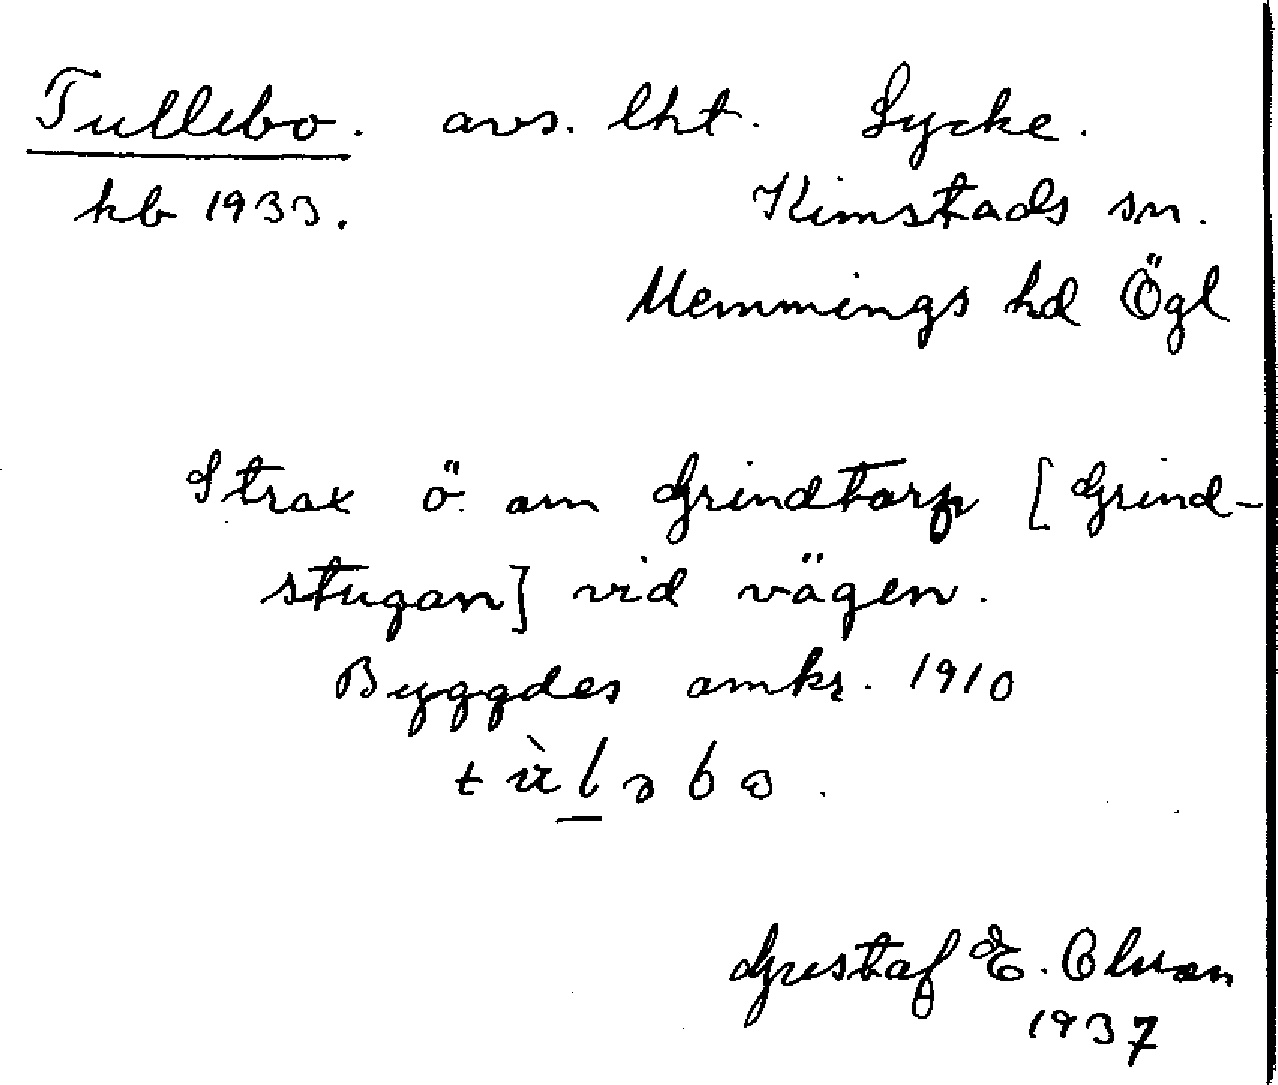 Tullebo. avs. lht. Lycke.
kb 1933. Kimstads sn.
Memmings hd Ögl
Strax ö. om Grindtorp [Grind-
stugan] vid vägen.
Byggdes omkr. 1910
Gustaf E.
1937